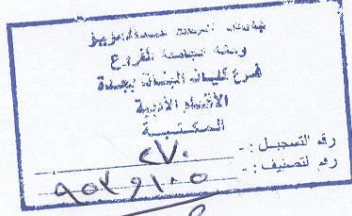 جامعة الملك عبدالعزيز
وكالة الجامعة للفروع
فرع كليات البنات بجدة
الأقسام الأدبية
المكتبة
رقم التسجيل : - ٢٧٠
رقم التصنيف : -